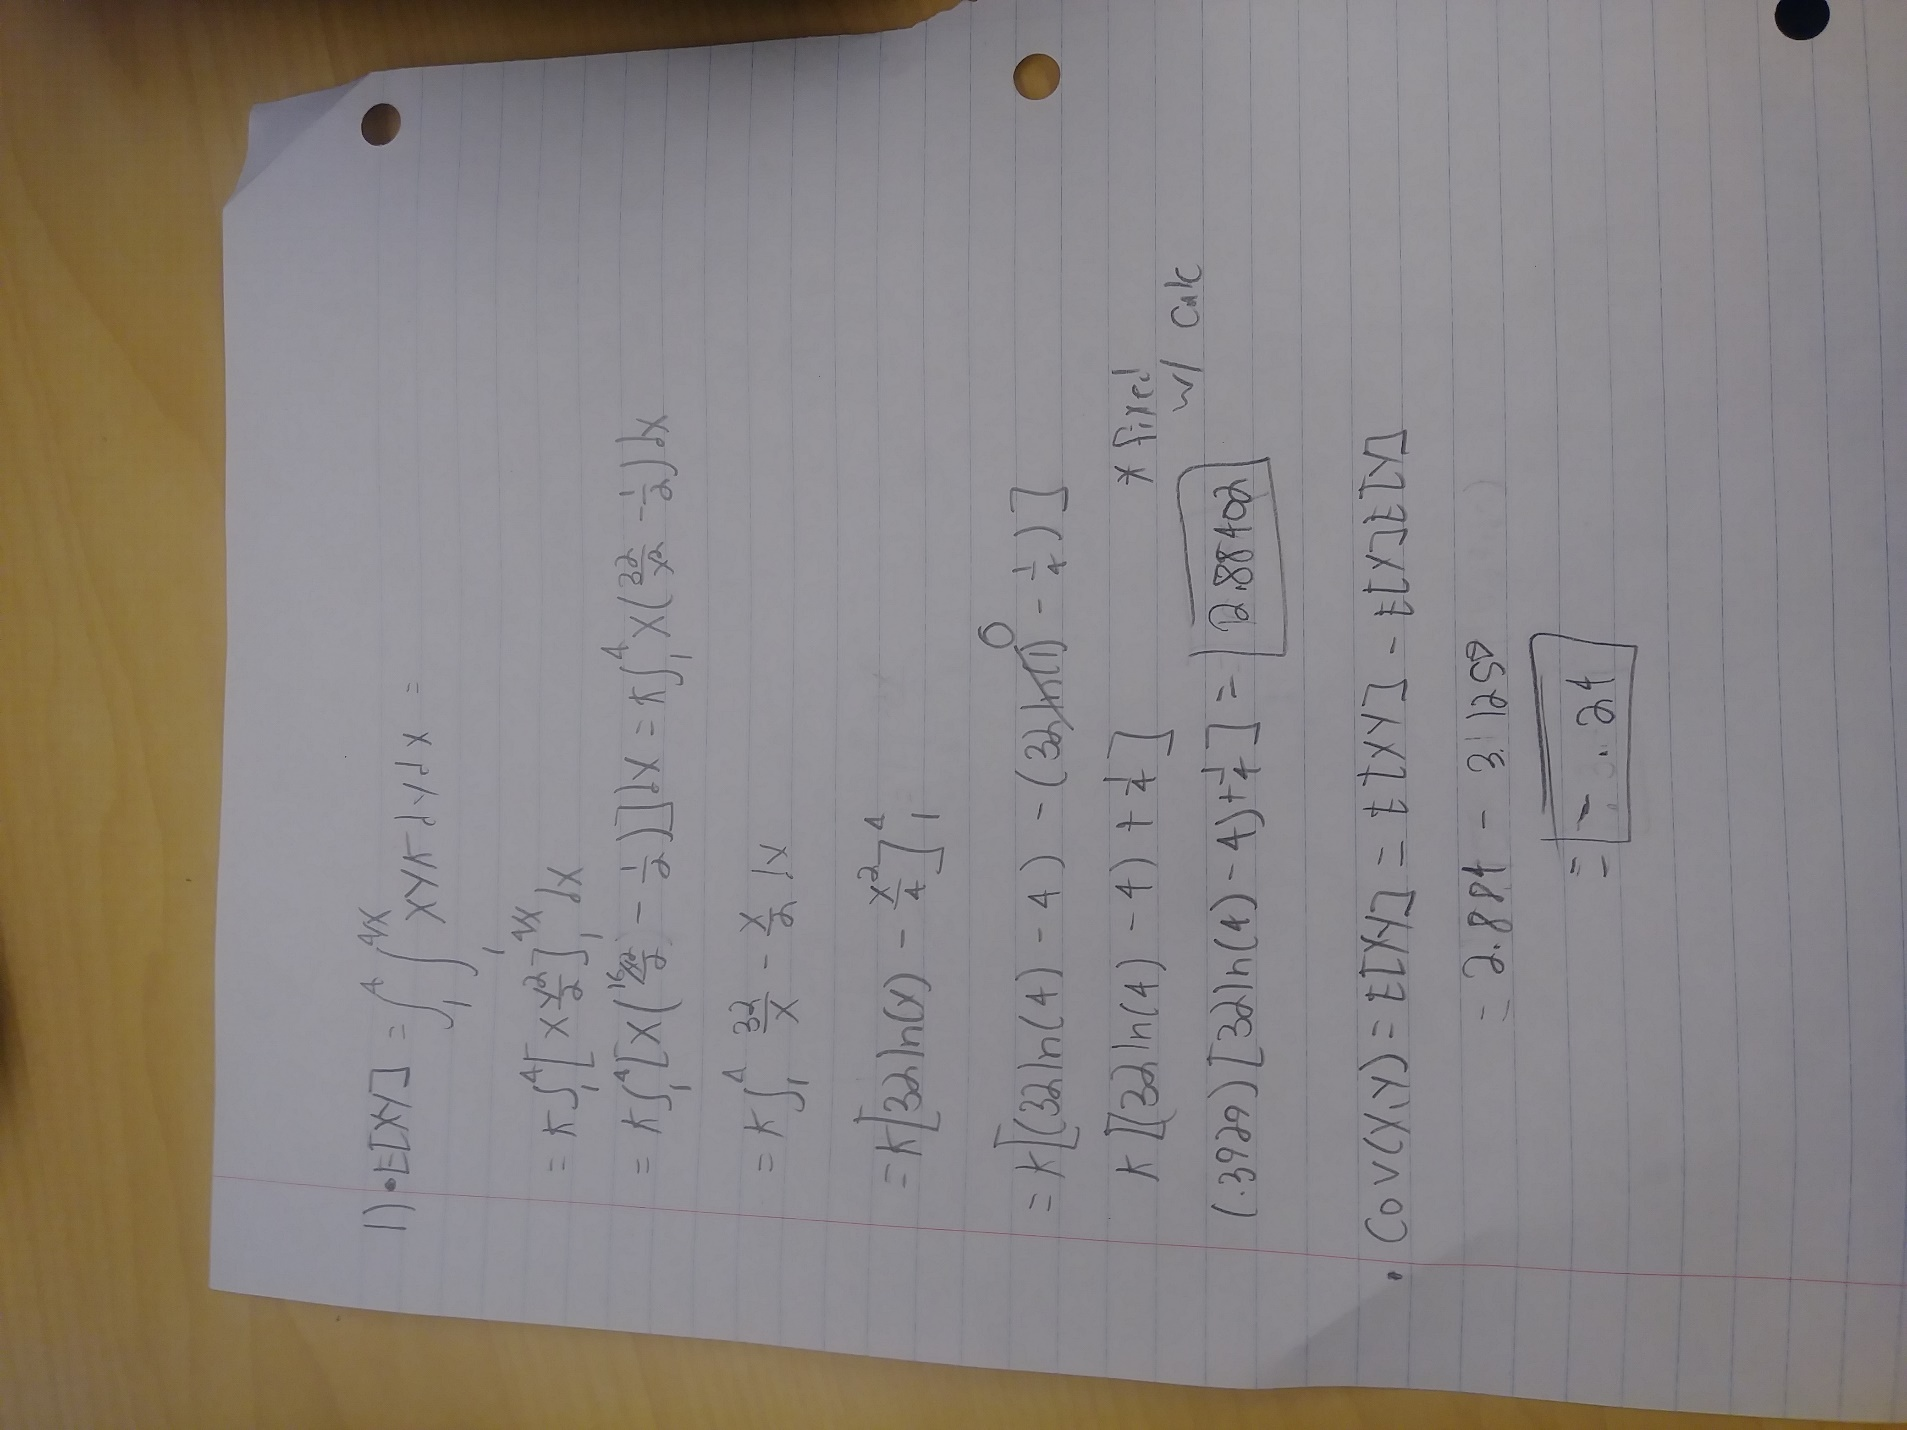 1) • E[XY] = ∫₁⁴ ∫₁^{4/x} xyk dy dx =
= k ∫₁⁴ [x y²/2]₁^{4/x} dx
= k ∫₁⁴ [x( /2 - 1/2)]]dx = k ∫₁⁴ x(32/x² - 1/2) dx
= k ∫₁⁴ 32/x - x/2 dx
= k[32 ln(x) - x²/4]₁⁴
= k[(32 ln(4) - 4) - (32 ln(1) - 1/4)]
0
k[(32 ln(4) - 4) + 1/4]
* fixed
w/ calc
(.3929)[32 ln(4) - 4) + 1/4] = 2.88402
• Cov(X,Y) = E[XY] = E[XY] - E[X]E[Y]
= 2.884 - 3.1250
= -.24